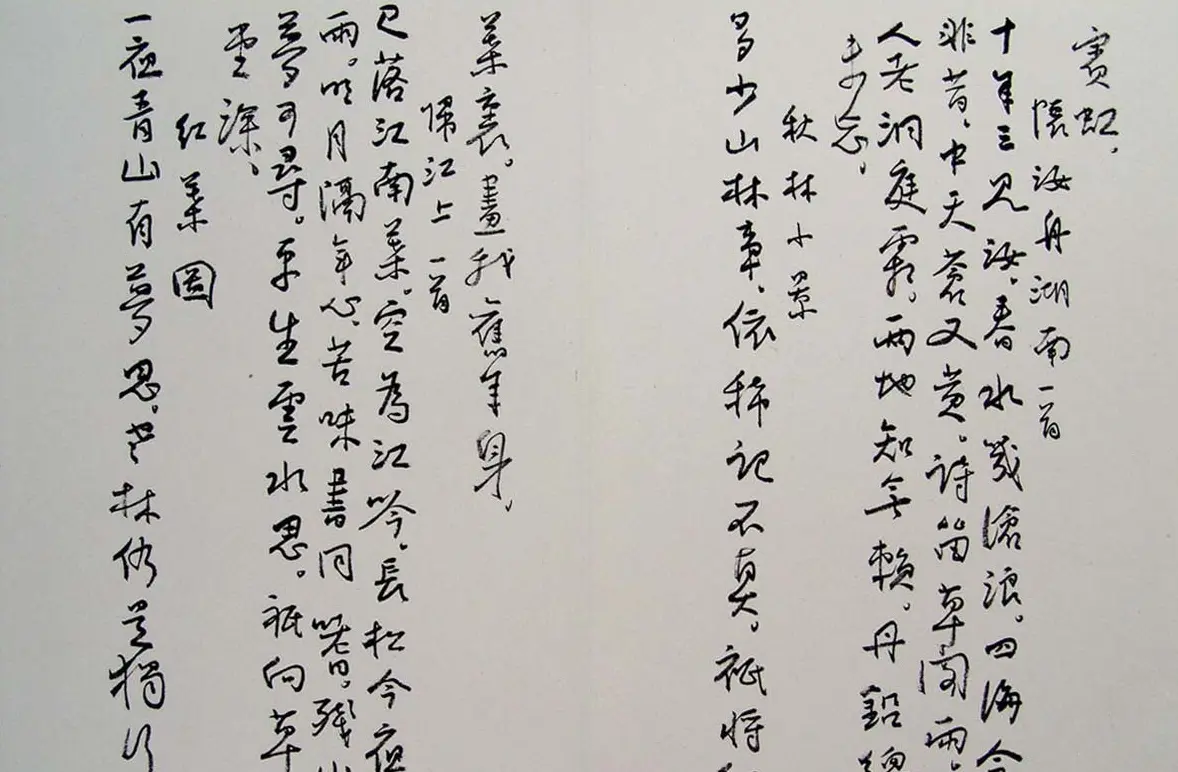 賓虹。
懷汝舟湖南一首
十年三見汝。春水幾滄浪。四海今
非昔。中天蒼又黃。詩留草閣雨。
人老洞庭霜。兩地知無賴。丹鉛總
未忘。
秋林小景
多少山林章。依稀記不真。祇將
葉裏。畫我舊年身。
歸江上一首
已落江南葉。空為江吟。長松今夜
雨。明月隔年心。苦味書同嗜。殘山
夢可尋。平生雲水思。祇向草
堂深。
紅葉圖
一夜青山有夢思。老林修竹獨行